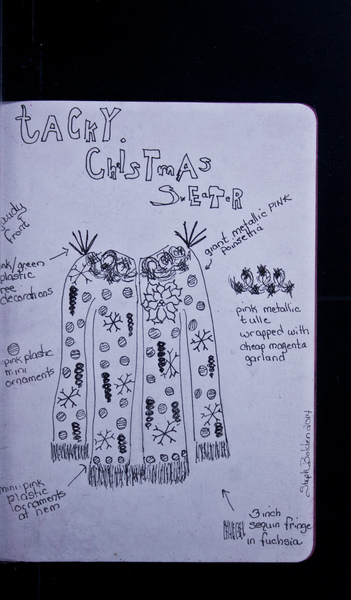 tACKY.
CHisTmAS
SwEaTeR
front
giant metallic PINK
poinsettia
plastic
decorations
pink metallic
tulle
wrapped with
cheap magenta
garland
pink plastic
mini
ornaments
mini pink
plastic
ornaments
at hem
3 inch
sequin fringe
in fuchsia
2014